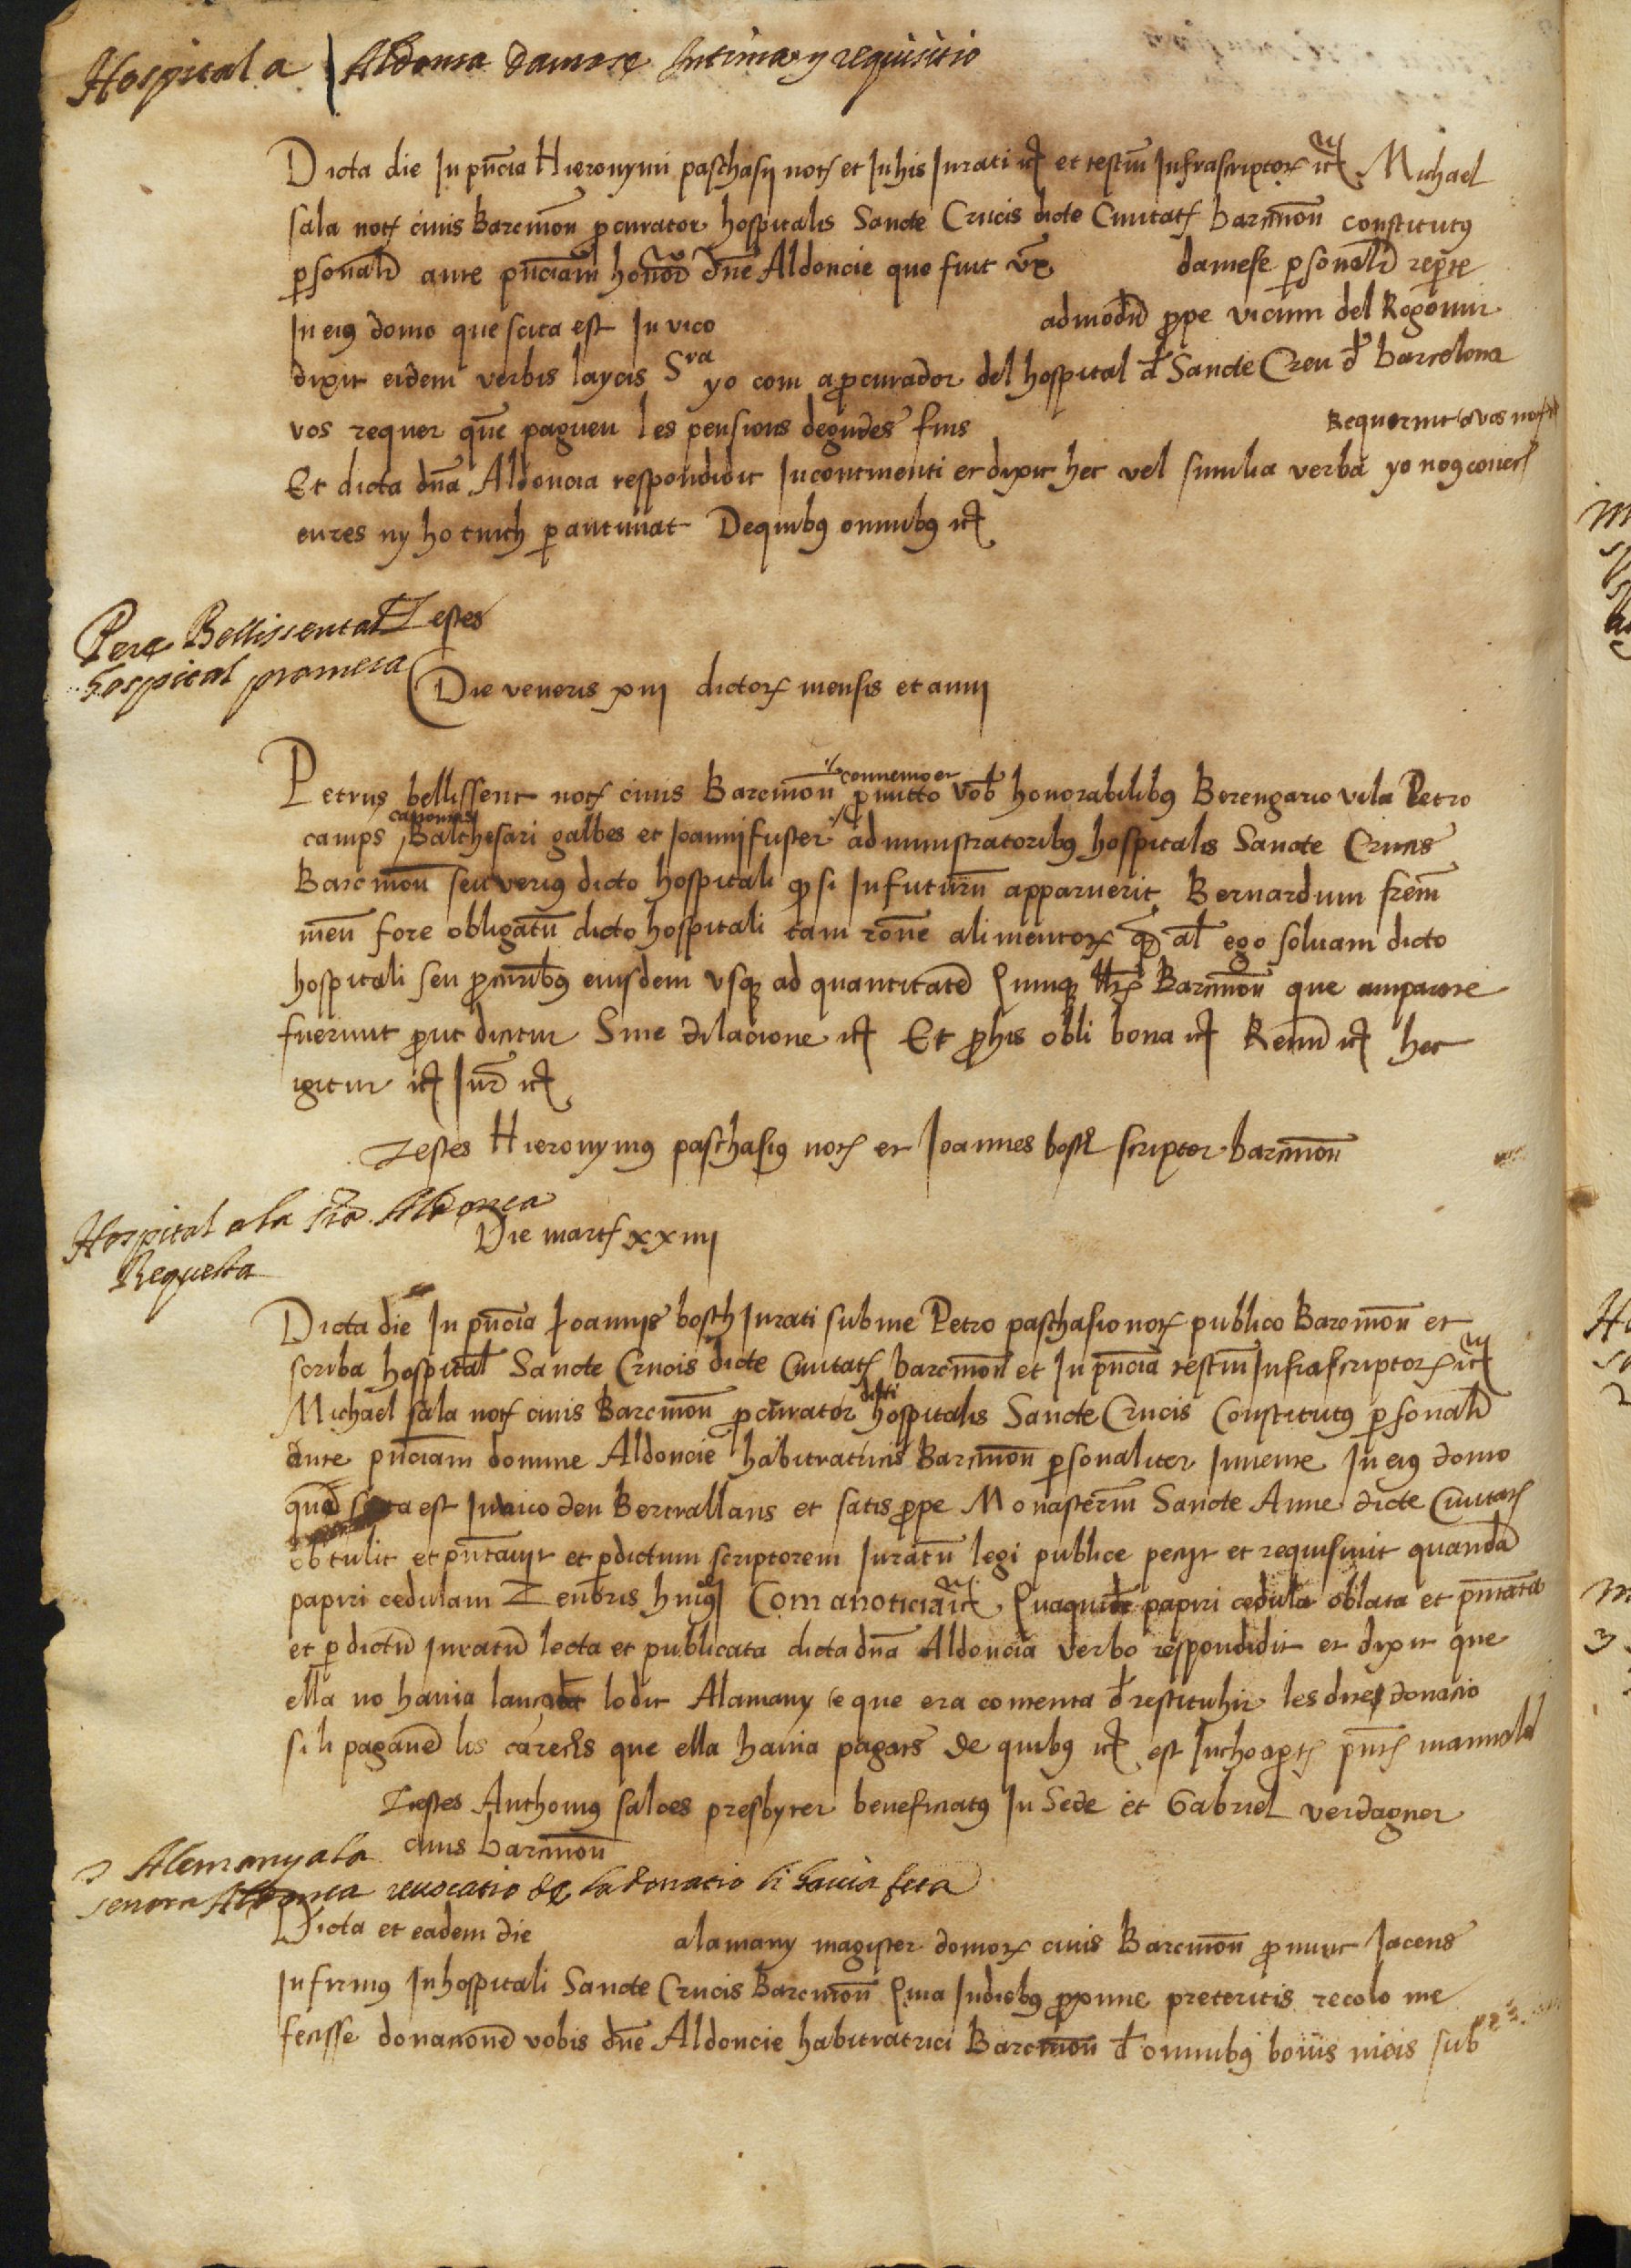 Hospital a Aldonsa damese Intima y requisitio
Dicta die In pñcia Hieronymi paschasij not et In his Jurati etc et testiũ Infrascriptor etc Michael
sala not ciuis Barcinoñ procurator hospitalis Sancte Crucis dicte Ciuitat barcinoñ constitutus
personalr ante pñciam honor dñe Aldoncie que fuit vx̃ damese personalr reperte
In eius domo que scita est In vico admodũ prope vicum del Regomir
dixit eidem verbis laycis Sra yo com a procurador del hospital d Sancte Creu d barcelona
vos requer que pagueu les pensions degudes fins Requerint a vos not
Et dicta dña Aldoncia respondidit Incontinenti et dixit hec vel similia verba yo nogconech
eures ny ho tinch per autunat Dequibus omnibus etc
Pere Bellissent al Testes
hospital promesa
Die veneris xiij dictor mensis et anni
connenio et
Petrus bellissent not ciuis Barcinoñ promitto vob honorabilibus Berengario vila Petro
canonicis
camps Balthesari galbes et Joannj fuster administratoribus hospitalis Sancte Crucis
Barcinoñ seu verius dicto hospitali q si In futurũ apparuerit Bernardum frẽm
meũ fore obligatũ dicto hospitali tam roñe alimentor q al ego soluam dicto
hospitali seu procuribus eiusdem vsq ad quantitatẽ Quinq llr Barcinoñ que
fuerint prout dicitur Sine dilacione etc Et pro his obli bona etc Renũ etc hec
igitur etc Jur etc
Testes Hieronymus paschasius not et Joannes bosch scriptor barcinoñ
Hospital a la sra Aldonsa
Requesta
Die mart xxiiij
Dicta die In pñcia Joannis bosch Jurati sub me Petro paschasio not publico Barcinoñ et
scriba hospital Sancte Crucis dicte Ciuitat barcinoñ et In pñcia testiũ Infrascriptor etc
dicti
Michael sala not ciuis Barcinoñ procurator hospitalis Sancte Crucis Constitutus personalr
ante pñciam domine Aldoncie habitatricis Barcinoñ personaliter Inuente In eius domo
que scita est In vico den Bertrallans et satis prope Monasteriũ Sancte Anne dicte Ciuitat
obtulit et pñtauit et per dictum scriptorem Juratũ legi publice petijt et requisiuit quandã
papiri cedulam Tenoris huiusmodi Com a noticia etc Quaquidẽ papiri cedula oblata et pñtata
et per dictũ Juratũ lecta et publicata dicta dña Aldoncia verbo respondidit et dixit que
ella no hauia lo dit Alamany e que era contenta d restituhir les dites donacio
si li pagauen los carechs que ella hauia pagats de quibus etc est
Testes Anthonius saloes presbyter beneficiatus In Sede et Gabriel verdaguer
ciuis barcinoñ
Alemany a la
senora Aldonsa reuocatio de la donatio li hauia feta
Dicta et eadem die alamany magister domor ciuis Barcinoñ pro nunc Jacens
Infirmus In hospitali Sancte Crucis Barcinoñ Quia In diebus proxime preteritis recolo me
fecisse donacionẽ vobis dñe Aldoncie habitatrici Barcinoñ d omnibus bonis meis sub